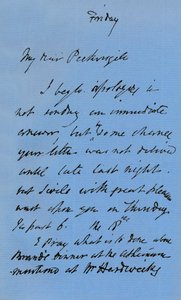 Friday
My dear
I beg to apologize
not sending an immediate
answer, but some chance
your letter was not delivered
until late last night.
but I will with great pleasure
wait upon you on Thursday
½ past 6. the 18th
I pray what is to done
dinner at the Athenaeum
mentioned at Mr